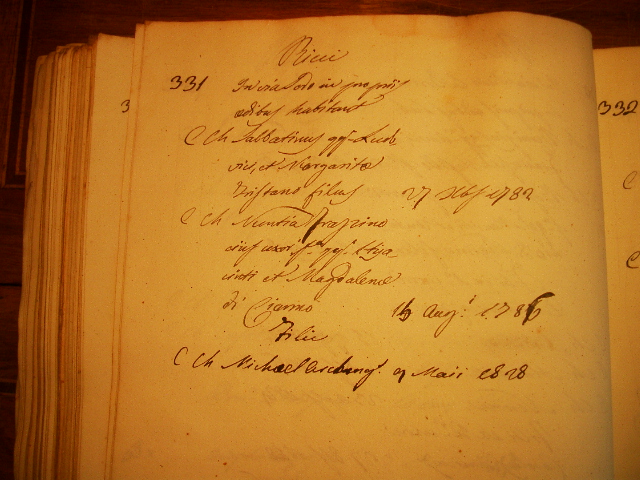 Ricci
331 In via Sodo in propriis
ædibus habitant
C Ch Sabbatinus qm Ludo
vici, et Margarita
Tristano filius 27 Xbris 1782
C Ch Nuntia Frazzino
eius uxor fa qm Hija
cinti et Magdalenæ
di Cianno Aug.i 1786
Filii
C Ch Michael Arcang.s Maii 1828
3
332
C
C